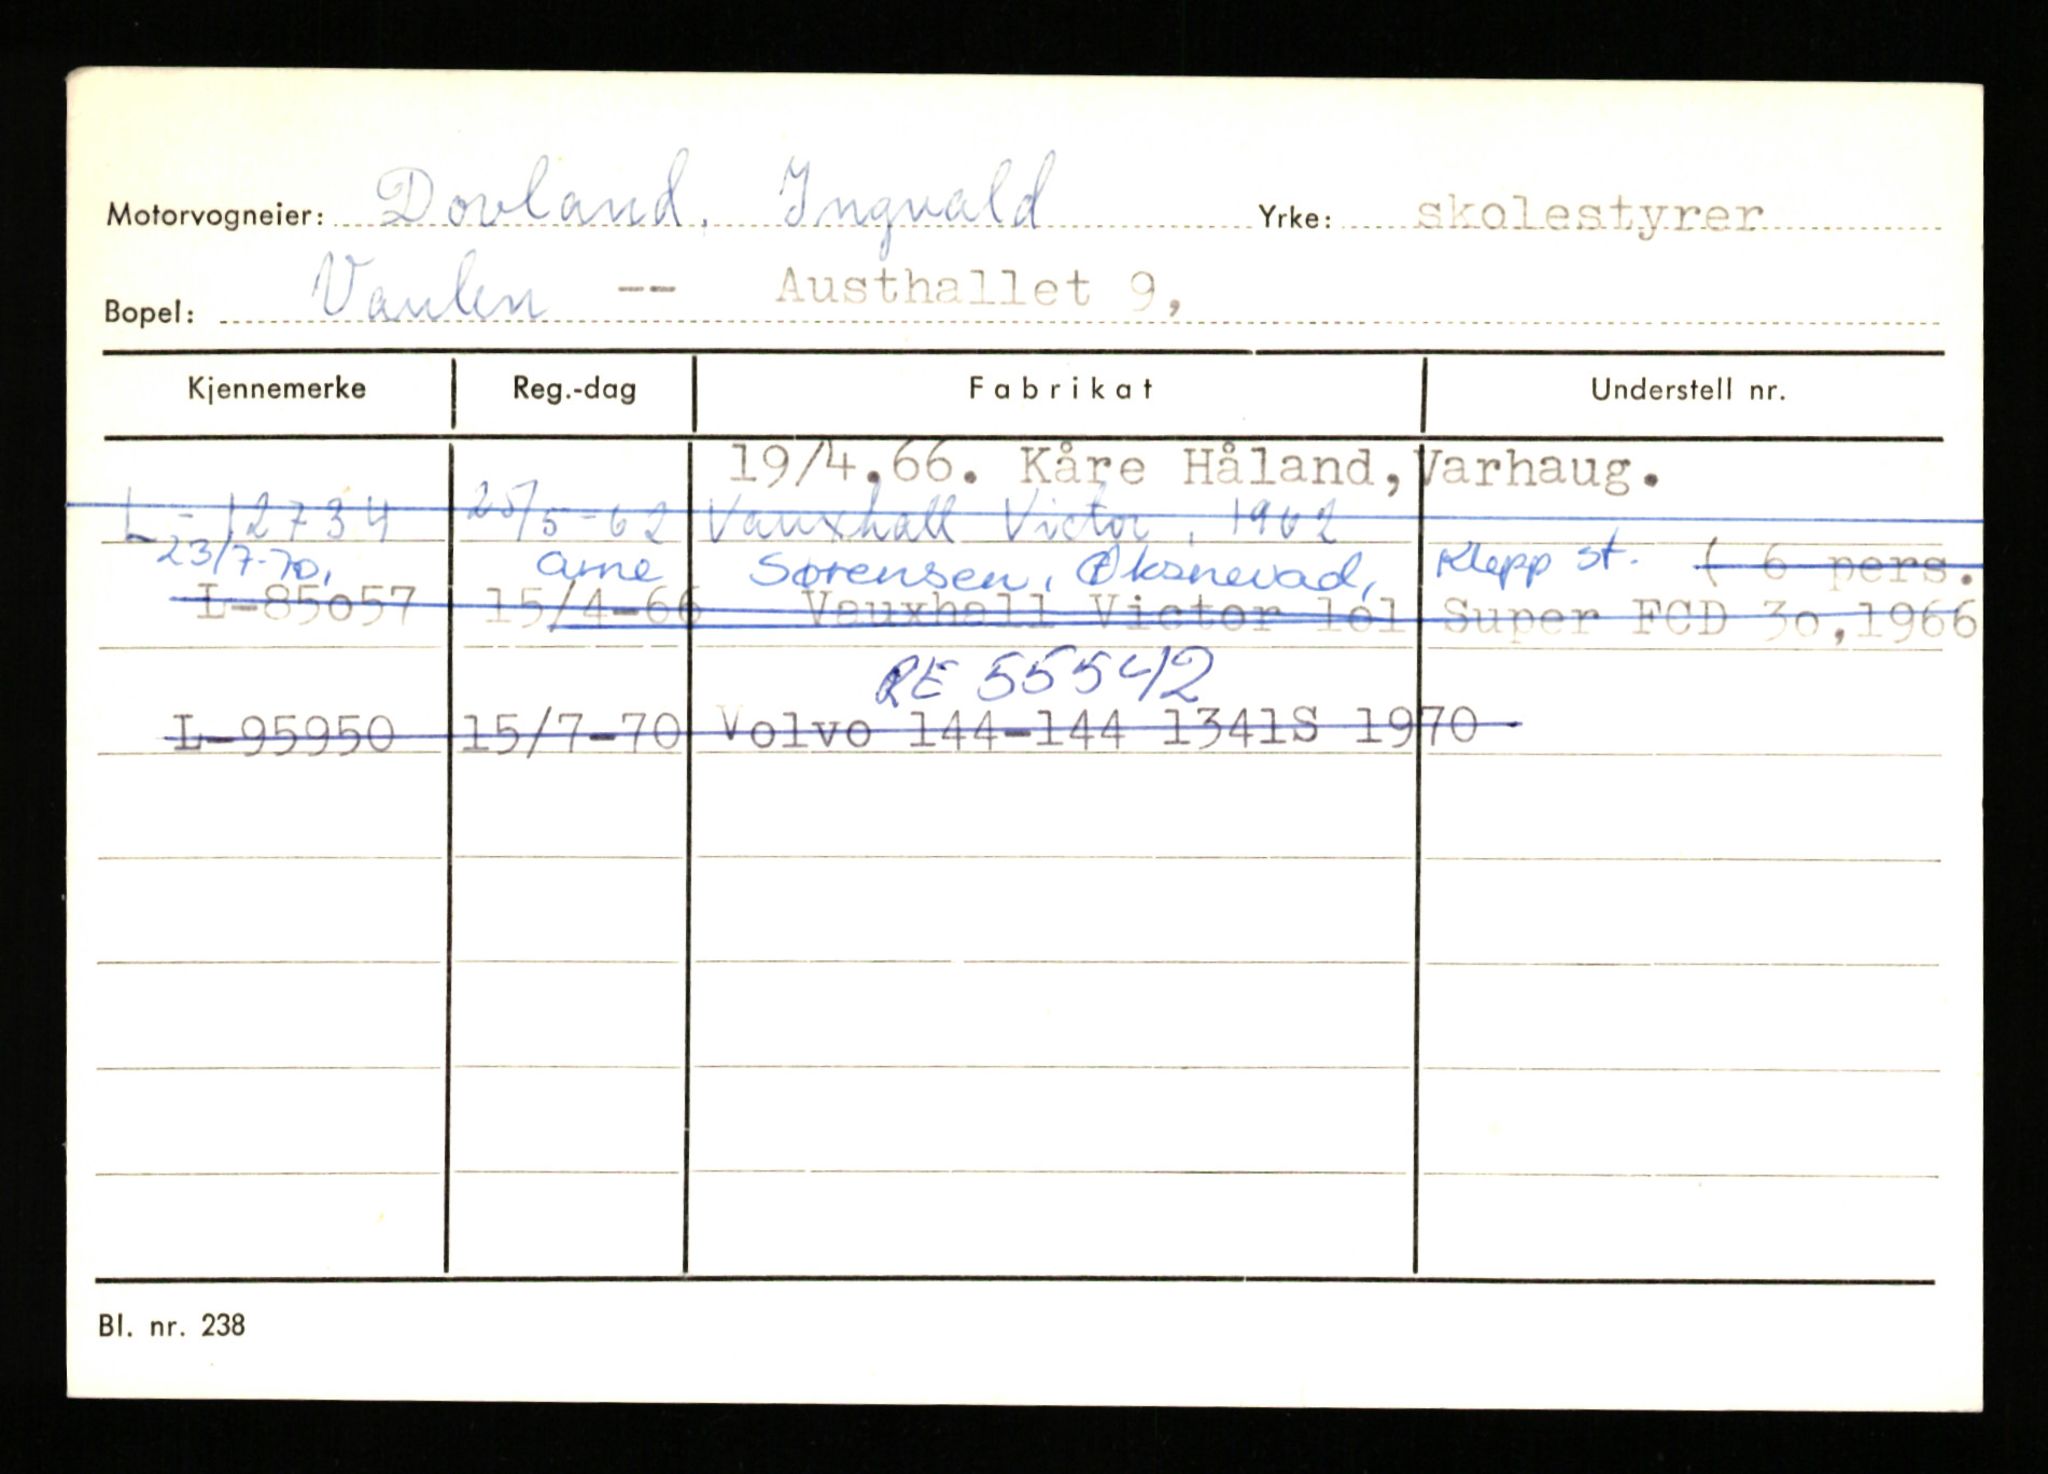 Motorvogneier: Dovland, Ingvald Yrke: skolestyrer
Bopel: Vaulen -- Austhallet 9,
Kjennemerke Reg.-dag Fabrikat Understell nr.
19/4.66. Kåre Håland, Varhaug.
L-12734 25/5-62 Vauxhall Victor, 1962
23/7-70, Arne Sørensen, Øksnevad, Klepp st. ( 6 pers.
L-85o57 15/4-66 Vauxhall Victor 1o1 Super FCD 3o,1966
RE 55542
L-95950 15/7-70 Volvo 144-144 1341S 1970
Bl. nr. 238